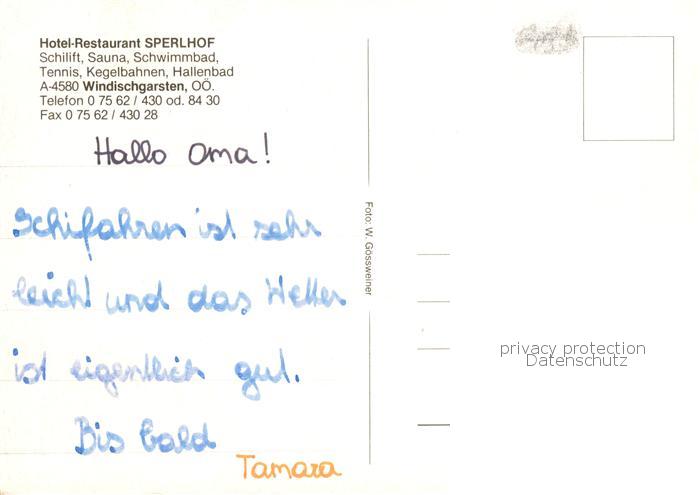 Hotel-Restaurant SPERLHOF
Schilift, Sauna, Schwimmbad,
Tennis, Kegelbahnen, Hallenbad
A-4580 Windischgarsten, OÖ.
Telefon 0 75 62 / 430 od. 84 30
Fax 0 75 62 / 430 28
Hallo Oma!
Schifahren ist sehr
leicht und das Wetter
ist eigentlich gut.
Bis bald
Tamara
Foto: W. Gössweiner
privacy protection
Datenschutz